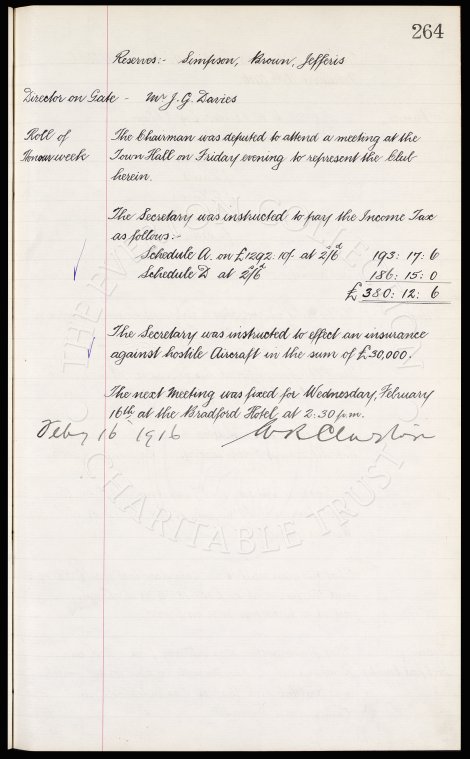 264
Reserves:- Simpson, Brown, Jefferis
Director on Gate - Mr J. G. Davies
Roll of Honour week
The Chairman was deputed to attend a meeting at the
Town Hall on Friday evening to represent the Club
herein.
The Secretary was instructed to pay the Income Tax
as follows:-
Schedule A. on £1292:10/- at 2/6d 193: 17: 6
Schedule D at 2/6d 186: 15: 0
£380: 12: 6
The Secretary was instructed to effect an insurance
against hostile Aircraft in the sum of £30,000.
The next Meeting was fixed for Wednesday, February
16th, at the Bradford Hotel, at 2:30 p.m.
Feby 16 1916 W R Clayton
THE EVERTON COLLECTION
CHARITABLE TRUST